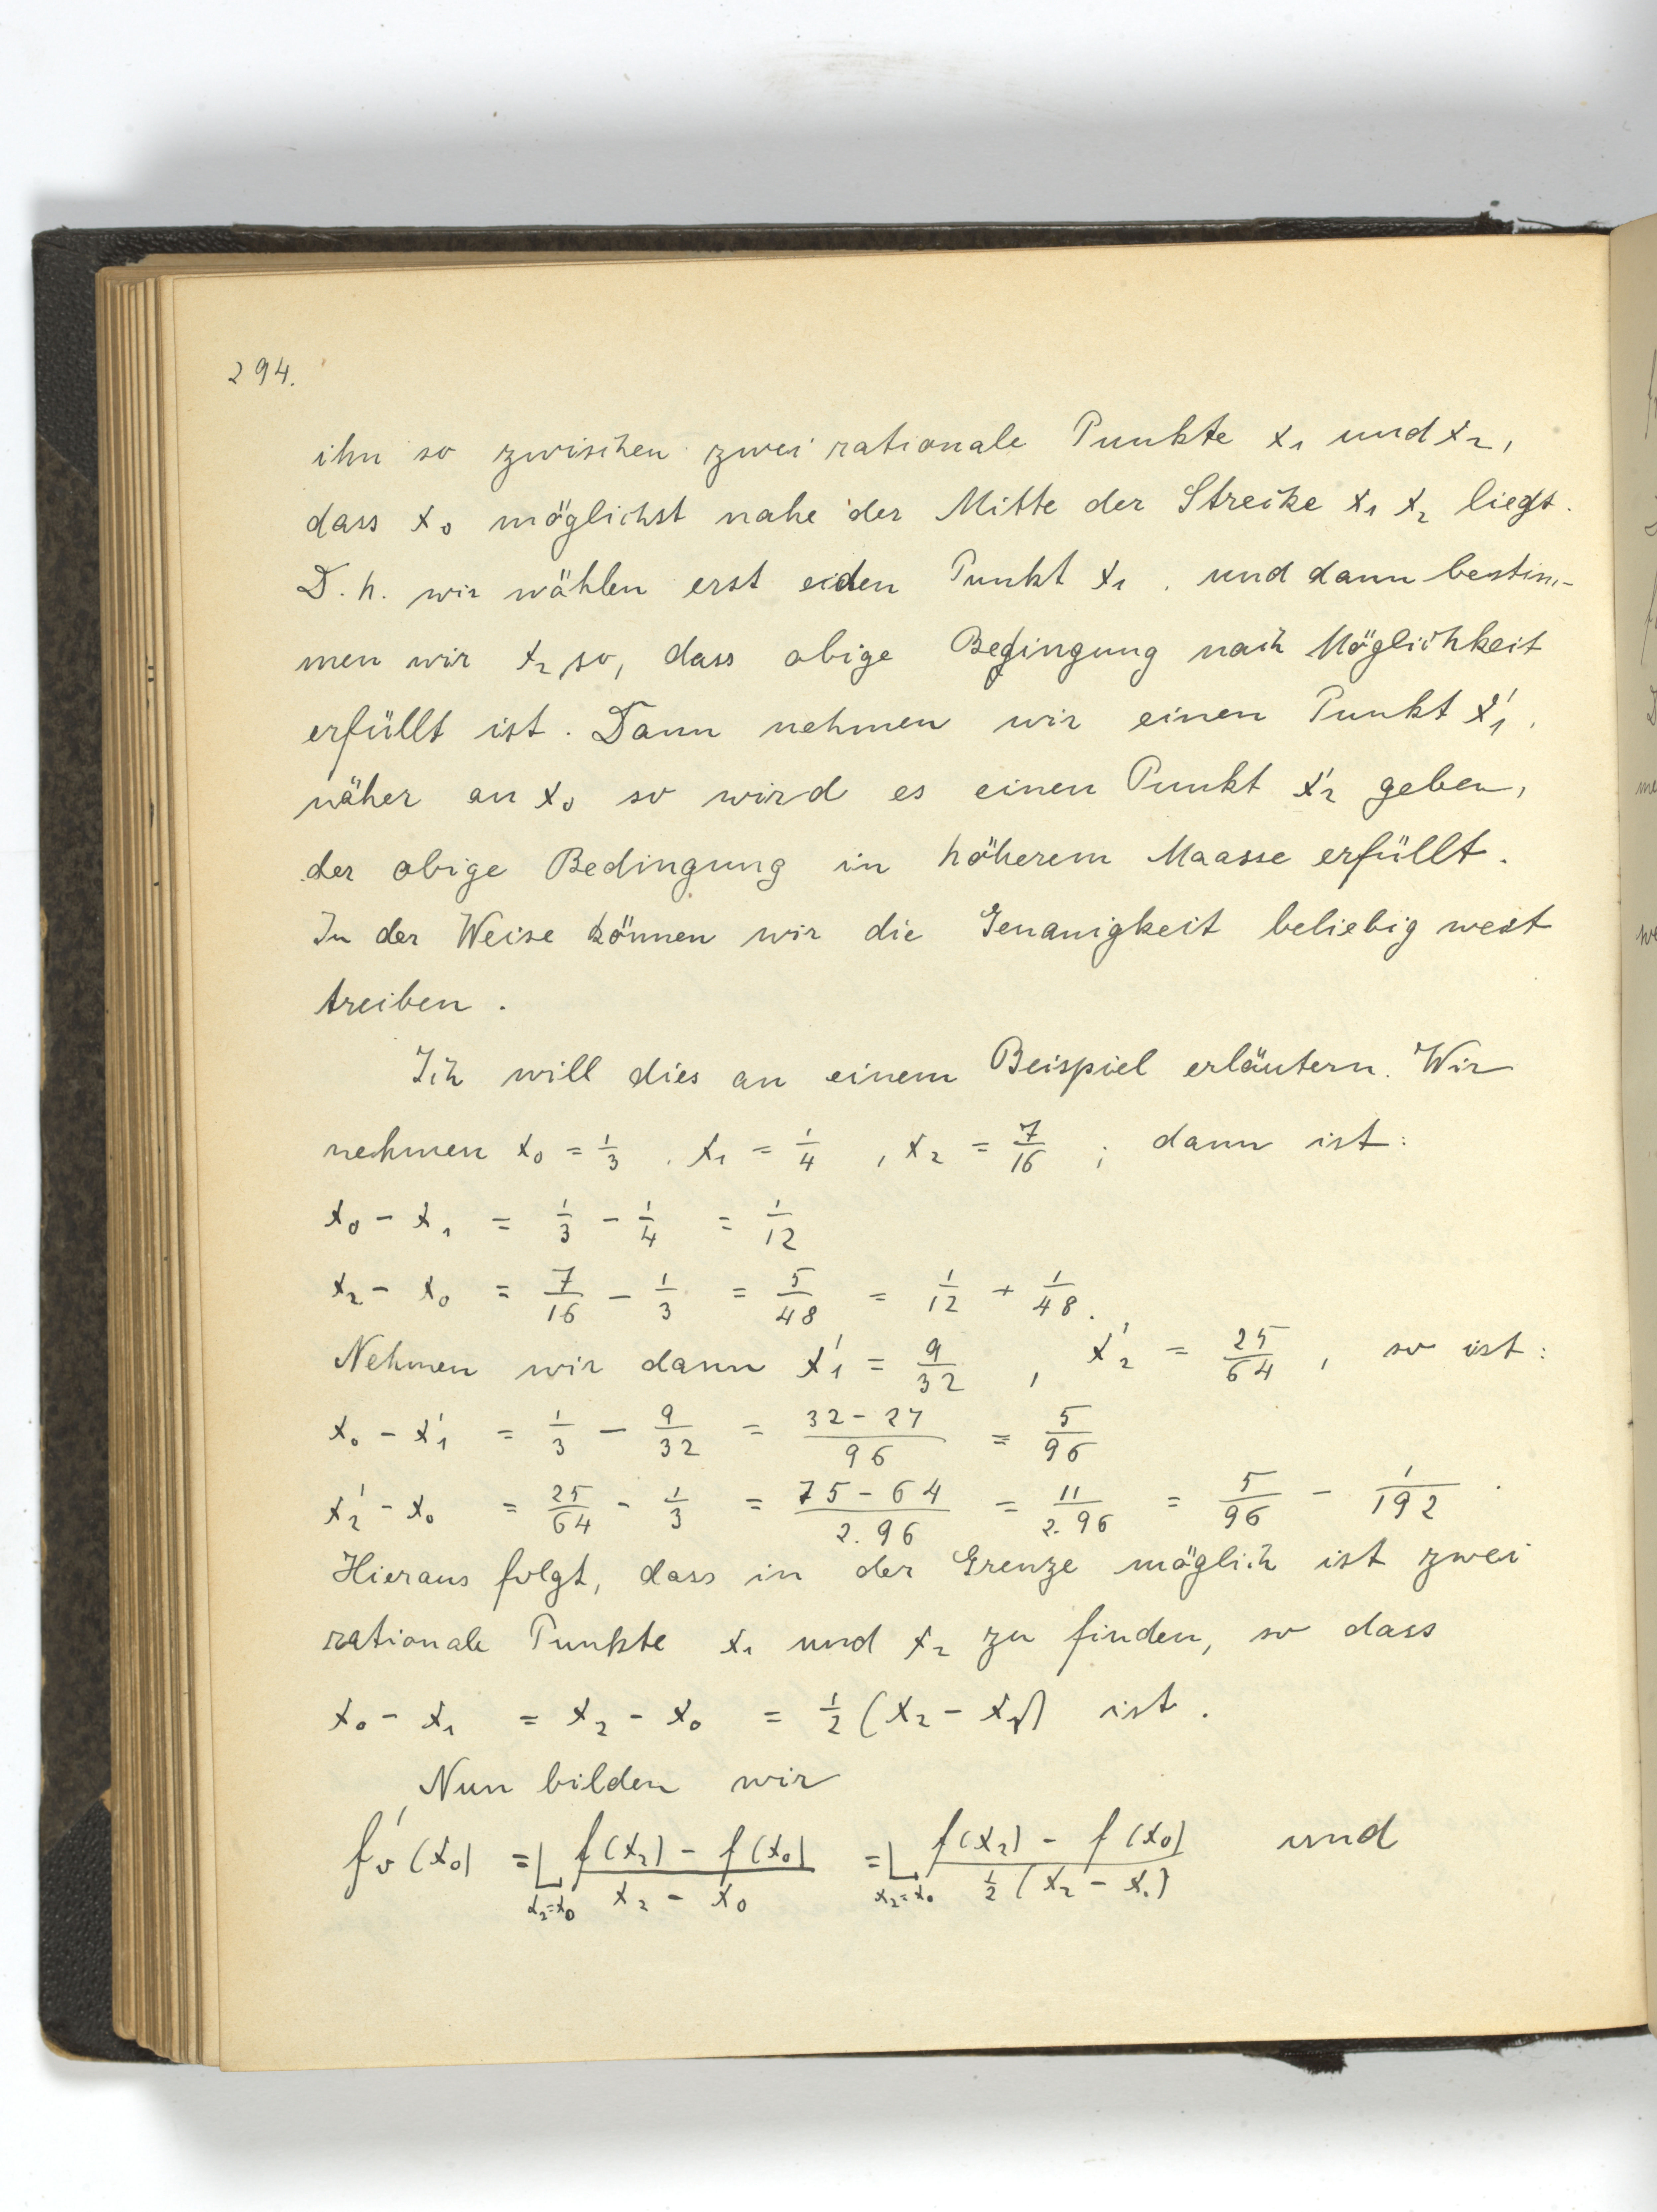 294.
ihn so zwischen zwei rationale Punkte x₁ und x₂,
dass x₀ möglichst nahe der Mitte der Strecke x₁ x₂ liegt.
D. h. wir wählen erst eiden Punkt x₁ . und dann bestim-
men wir x₂ so, dass obige Bedingung nach Möglichkeit
erfüllt ist. Dann nehmen wir einen Punkt x₁′,
näher an x₀ so wird es einen Punkt x₂′ geben,
der obige Bedingung in höherem Maasse erfüllt.
In der Weise können wir die Genauigkeit beliebig weit
treiben.
Ich will dies an einem Beispiel erläutern. Wir
nehmen x₀ = 1/3 , x₁ = 1/4 , x₂ = 7/16 ; dann ist:
x₀ - x₁ = 1/3 - 1/4 = 1/12
x₂ - x₀ = 7/16 - 1/3 = 5/48 = 1/12 + 1/48.
Nehmen wir dann x₁′ = 9/32 , x₂′ = 25/64 , so ist:
x₀ - x₁′ = 1/3 - 9/32 = (32-27)/96 = 5/96
x₂′ - x₀ = 25/64 - 1/3 = (75-64)/(2.96) = 11/(2.96) = 5/96 - 1/192 .
Hieraus folgt, dass in der Grenze möglich ist zwei
rationale Punkte x₁ und x₂ zu finden, so dass
x₀ - x₁ = x₂ - x₀ = 1/2 (x₂ - x₁) ist.
Nun bilden wir
fᵥ′(x₀) = L_{x₂=x₀} (f(x₂) - f(x₀))/(x₂ - x₀) = L_{x₂=x₀} (f(x₂) - f(x₀))/(1/2 (x₂ - x₁)) und